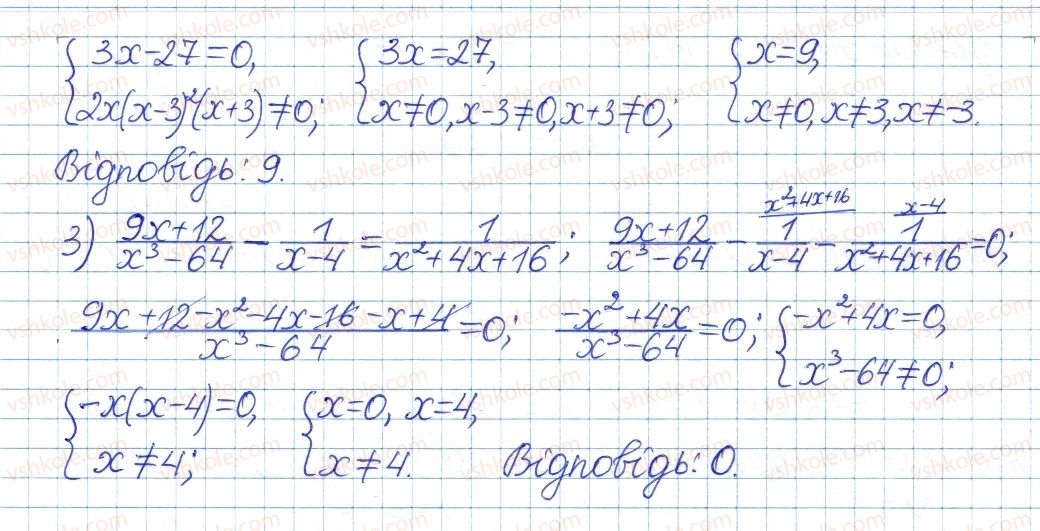 {3x-27=0, {3x=27, {x=9,
2x(x-3)²(x+3)≠0; x≠0, x-3≠0, x+3≠0; x≠0, x≠3, x≠-3.
Відповідь: 9.
3) (9x+12)/(x³-64) - 1/(x-4) = 1/(x²+4x+16); (9x+12)/(x³-64) - 1/(x-4) ^(x²+4x+16) - 1/(x²+4x+16) ^(x-4) = 0;
(9x+12-x²-4x-16-x+4)/(x³-64) = 0; (-x²+4x)/(x³-64) = 0; {-x²+4x=0,
x³-64≠0;
{-x(x-4)=0, {x=0, x=4,
x≠4; x≠4. Відповідь: 0.